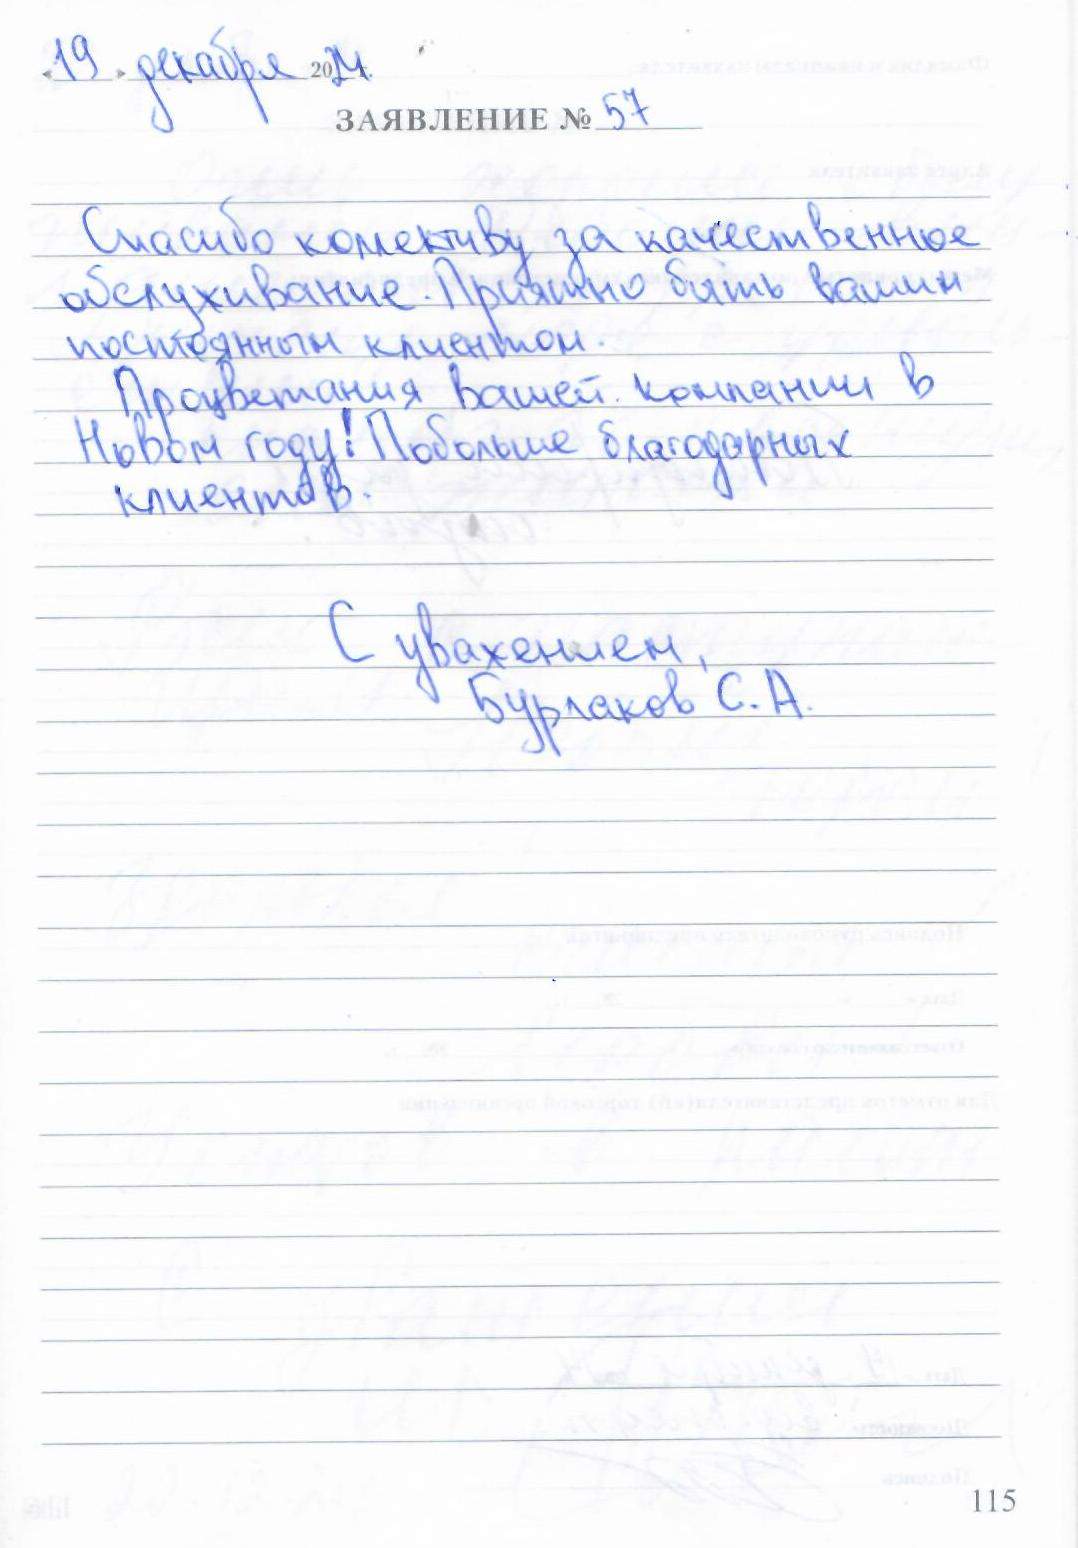 «19» декабря 2024 г.
ЗАЯВЛЕНИЕ № 57
Спасибо коллективу за качественное
обслуживание. Приятно быть вашим
постоянным клиентом.
Процветания вашей компании в
Новом году! Побольше благодарных
клиентов.
С уважением,
Бурлаков С.А.
115